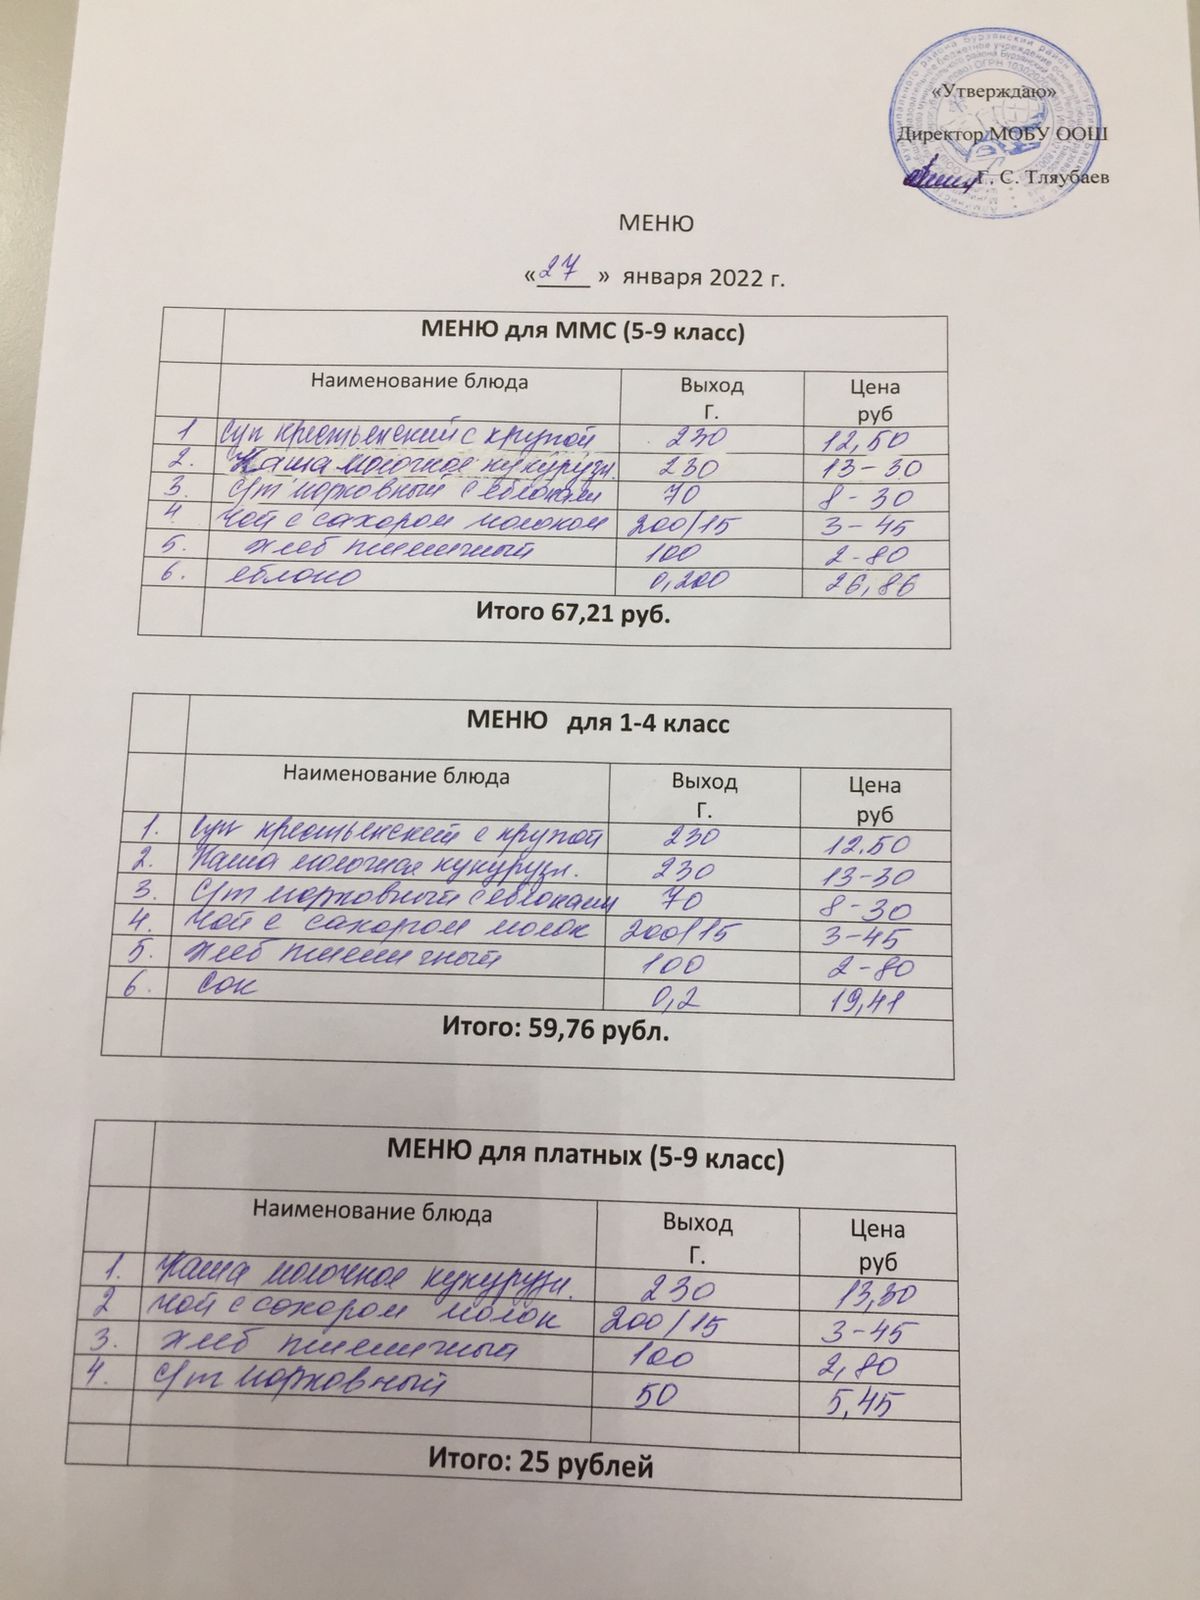 «Утверждаю»
Директор МОБУ ООШ
Г. С. Тляубаев
МЕНЮ
«27» января 2022 г.
МЕНЮ для ММС (5-9 класс)
Наименование блюда Выход Г. Цена руб
1 Суп крестьенский с крупой 230 12,50
2. Каша молочное кукурузн. 230 13-30
3. С/т морковный с яблоками 70 8-30
4 Чой с сахором молоком 200/15 3-45
5. Хлеб пшеничный 100 2-80
6. яблоко 0,200 26,86
Итого 67,21 руб.
МЕНЮ для 1-4 класс
Наименование блюда Выход Г. Цена руб
1. Суп крестьенский с крупой 230 12.50
2. Каша молочная кукурузн. 230 13-30
3. С/т морковный с яблоками 70 8-30
4. Чой с сахором молок 200/15 3-45
5. Хлеб пшеничный 100 2-80
6. Сок 0,2 19,41
Итого: 59,76 рубл.
МЕНЮ для платных (5-9 класс)
Наименование блюда Выход Г. Цена руб
1. Каша молочное кукурузн. 230 13,30
2 Чой с сохором молок 200/15 3-45
3. Хлеб пшеничный 100 2,80
4. С/т морковный 50 5,45
Итого: 25 рублей